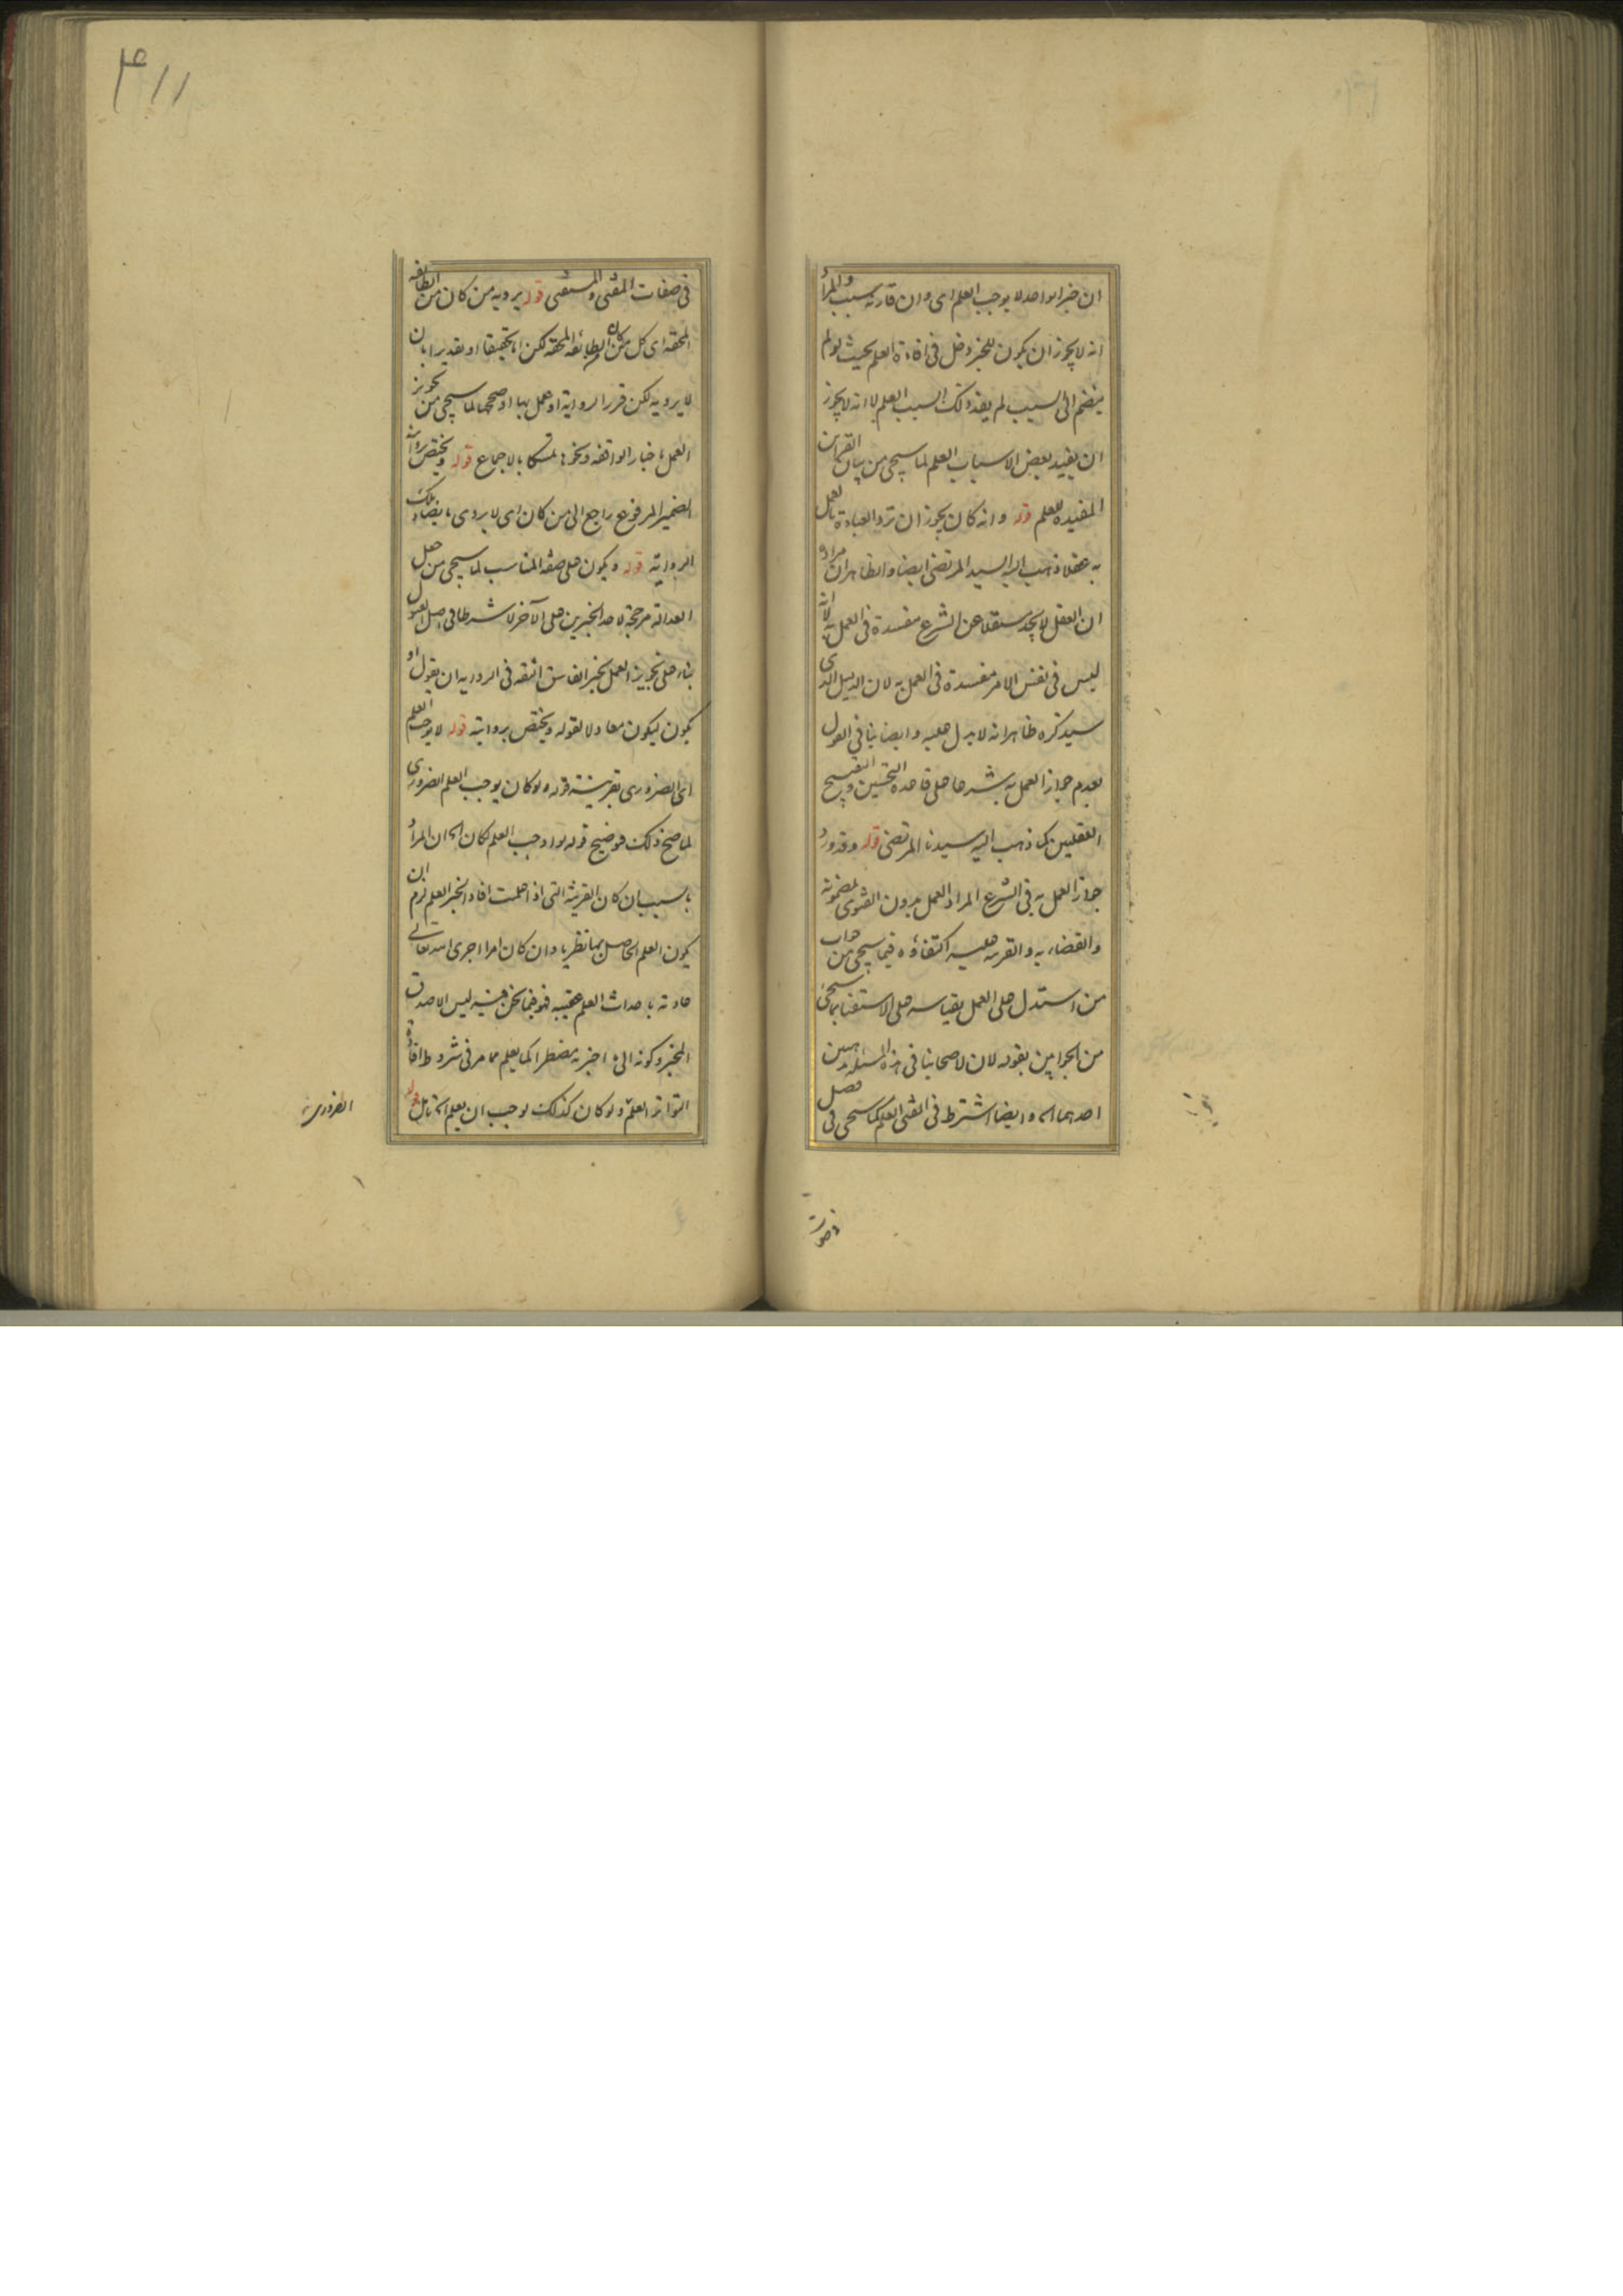 ان خبر الواحد لا يوجب العلم اى وان قارنه سبب والمراد
انه لا يجوز ان يكون للخبر دخل فى افادة العلم بحيث لو لم
ينضم الى السبب لم يفد ذلك السبب العلم لا انه لا يجوز
ان يفيد بعض الاسباب العلم لما سيجى من بيان القراين
المفيدة للعلم قوله وانه كان يجوز ان ترد العبادة بالعمل
به عقلا ذهب اليه السيد المرتضى ايضا والظاهر ان مراده
ان العقل لا يجد مستقلا عن الشرع مفسدة فى العمل به لا انه
ليس فى نفس الامر مفسدة فى العمل به لان الدليل الذى
سيذكره ظاهرا انه لا يدل عليه وايضا ينافى القول
بعدم جواز العمل به شرعا على قاعدة التحسين والتقبيح
العقليين كما ذهب اليه سيدنا المرتضى قوله وقد ورد
جواز العمل به فى الشرع المراد العمل بدون الفتوى بمضمونه
والقضاء به والقرينه عليه اكتفاؤه فيما سيجى من جواب
من استدل على العمل بقياسه على الاستفتا بما سيجئ
من الجوابين بقوله لان لاصحابنا فى هذه المسئله مذهبين
احدهما اه وايضا اشترط فى المفتى العلم كما سيجى فى فصل
فى صفات المفتى والمستفتى قوله يرويه من كان من الطائفه
المحقه اى كل من كان من الطائفه المحقه لكن اما تحقيقا او تقديرا بان
لا يرويه لكن قرر الرواية او عمل بها او صححها لما سيجى من تجويز
العمل باخبار الواقفه ونحوها تمسكا بالاجماع قوله ويختص بروايته
الضمير المرفوع راجع الى من كان اى لا يروى ما يضاد تلك
الرواية قوله ويكون على صفه المناسب لما سيجى من جعل
العدالة مرجحة لاحد الخبرين على الآخر لا شرطا فى اصل القبول
بناء على تجويز العمل بخبر الفاسق الثقه فى الرواية ان يقول او
يكون ليكون معادلا لقوله ويختص بروايته قوله لا يوجب العلم
اى الضرورى بقرينة قوله ولو كان يوجب العلم الضرورى
لما صح ذلك فوضيح قوله لو اوجب العلم لكان اه ان المراد
بالسبب ان كان القرينة التى اذا علمت افاد الخبر العلم لزم ان
يكون العلم الحاصل بها نظريا وان كان امرا اجرى الله تعالى
عادته باحداث العلم عقيبه فهو فيما نحن فيه ليس الا صدق
المخبر وكونه الى ما اخبر به مضطرا كما يعلم مما مر فى شروط افادة
التواتر العلم ولو كان كذلك لوجب ان يعلم اه تامل قوله
الضرورى